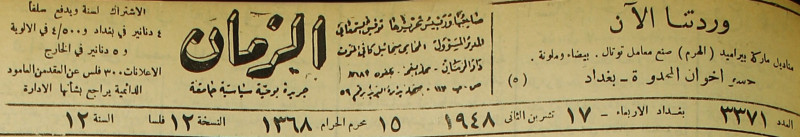 وردتنا الآن
مناديل ماركة بيراميد (الهرم) صنع معامل توتال. بيضاء وملونة.
حسو اخوان المحدودة - بغداد (٥)
صاحبها ورئيس تحريرها توفيق السمعاني
المدير المسؤول: المحامي اسماعيل كاني المفتي
دار الزمان
ص. ب ١١٣
الزمان
جريدة يومية سياسية جامعة
الاشتراك لسنة ويدفع سلفاً
٤ دنانير في بغداد و ٤/٥٠٠ في الالوية
و ٥ دنانير في الخارج
الاعلانات ٣٠٠ فلس عن العقدة من العامود
الدائمية يراجع بشأنها الادارة
العدد ٣٣٧١ بغداد الاربعاء - ١٧ تشرين الثاني ١٩٤٨ ١٥ محرم الحرام ١٣٦٨ النسخة ١٢ فلسا السنة ١٢